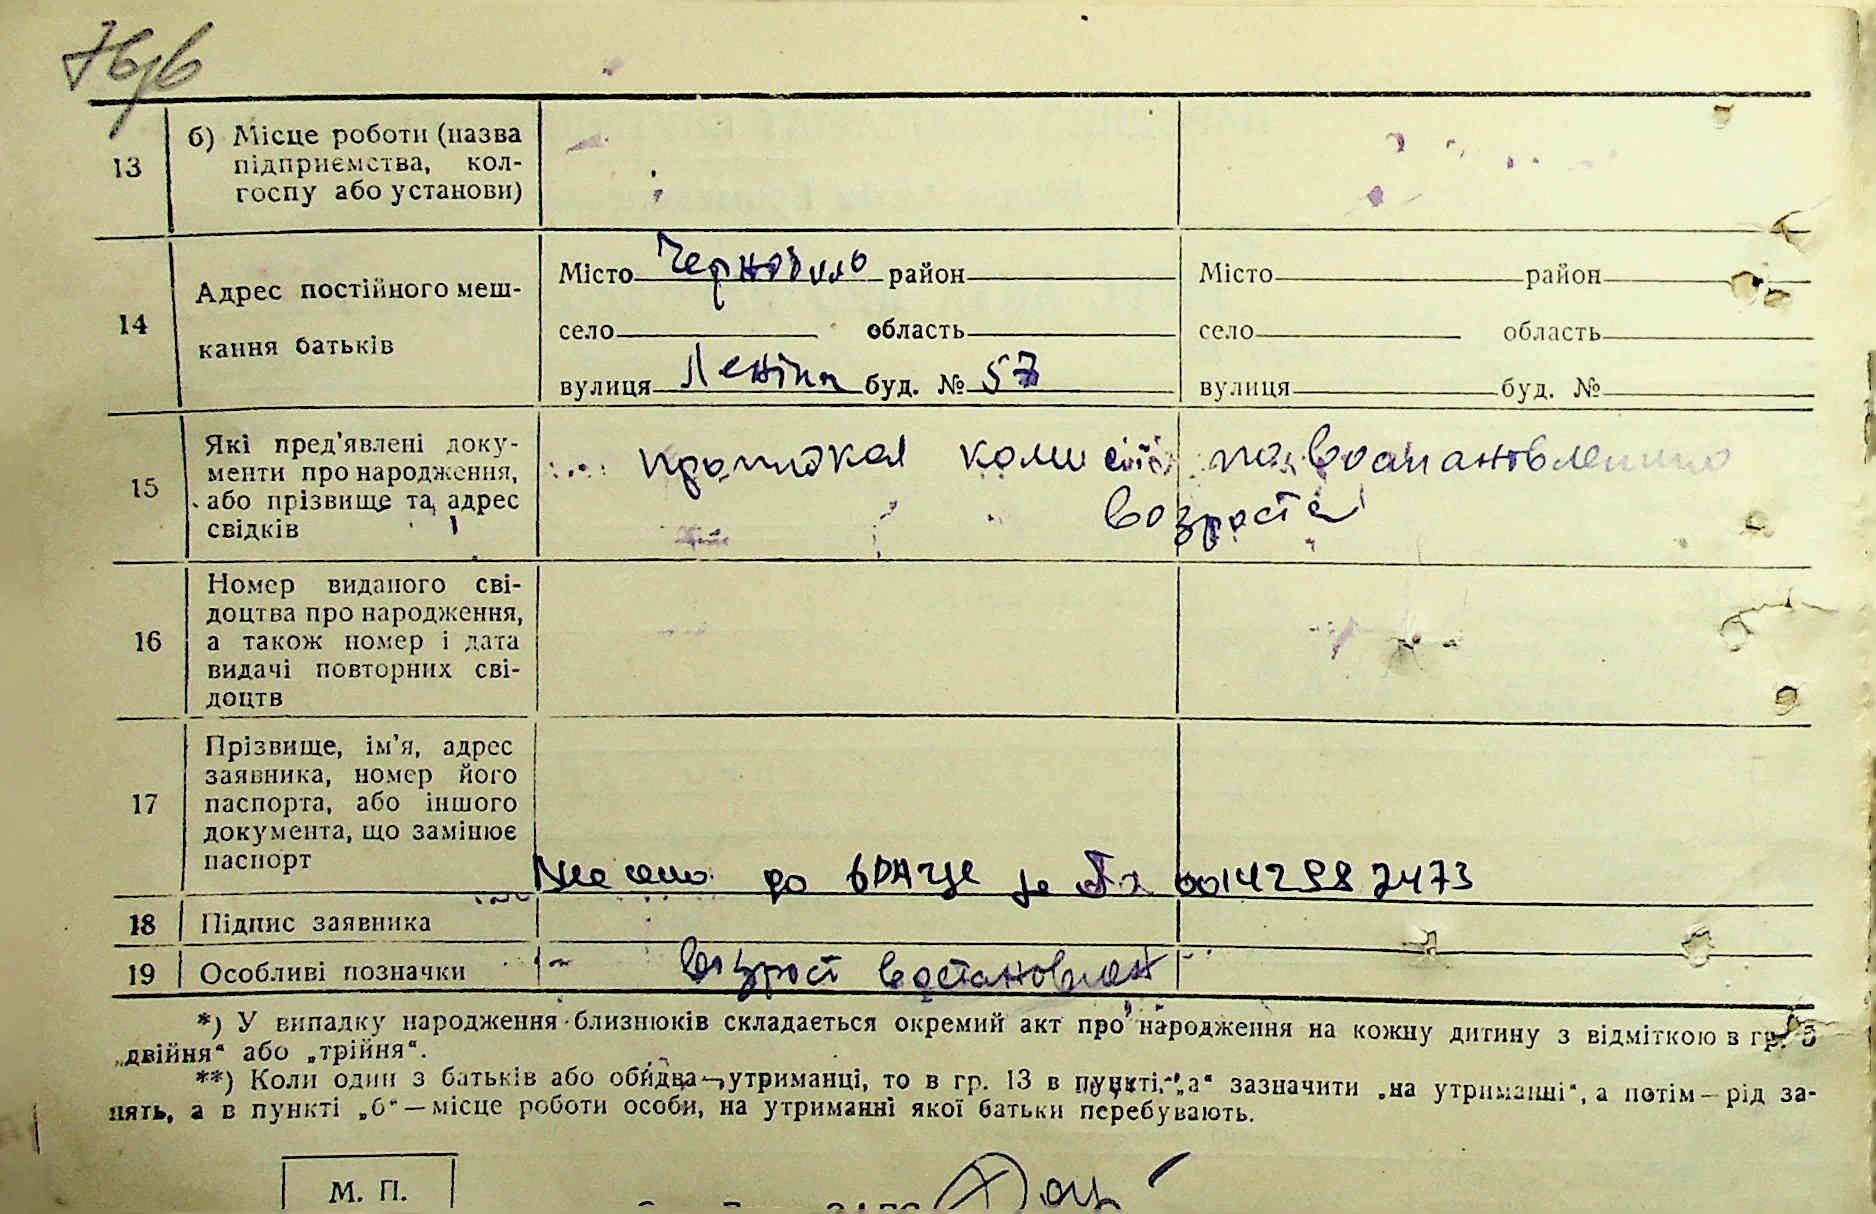 13
б) Місце роботи (назва
підприємства, кол-
госпу або установи)
14
Адрес постійного меш-
кання батьків
Місто Чернобиль район
село область
вулиця Леніна буд. № 57
Місто район
село область
вулиця буд. №
15
Які пред'явлені доку-
менти про народження,
або прізвище та адрес
свідків
протокол комисії по востановлению
возраста
16
Номер виданого сві-
доцтва про народження,
а також номер і дата
видачі повторних сві-
доцтв
17
Прізвище, ім'я, адрес
заявника, номер його
паспорта, або іншого
документа, що замінює
паспорт
до ДРАЦС за № 00142982473
18 Підпис заявника
19 Особливі позначки
возрост востановлен
*) У випадку народження близнюків складається окремий акт про народження на кожну дитину з відміткою в гр. 5
„двійня“ або „трійня“.
**) Коли один з батьків або обидва—утриманці, то в гр. 13 в пункті „а“ зазначити „на утриманні“, а потім—рід за-
нять, а в пункті „б“—місце роботи особи, на утриманні якої батьки перебувають.
М. П.